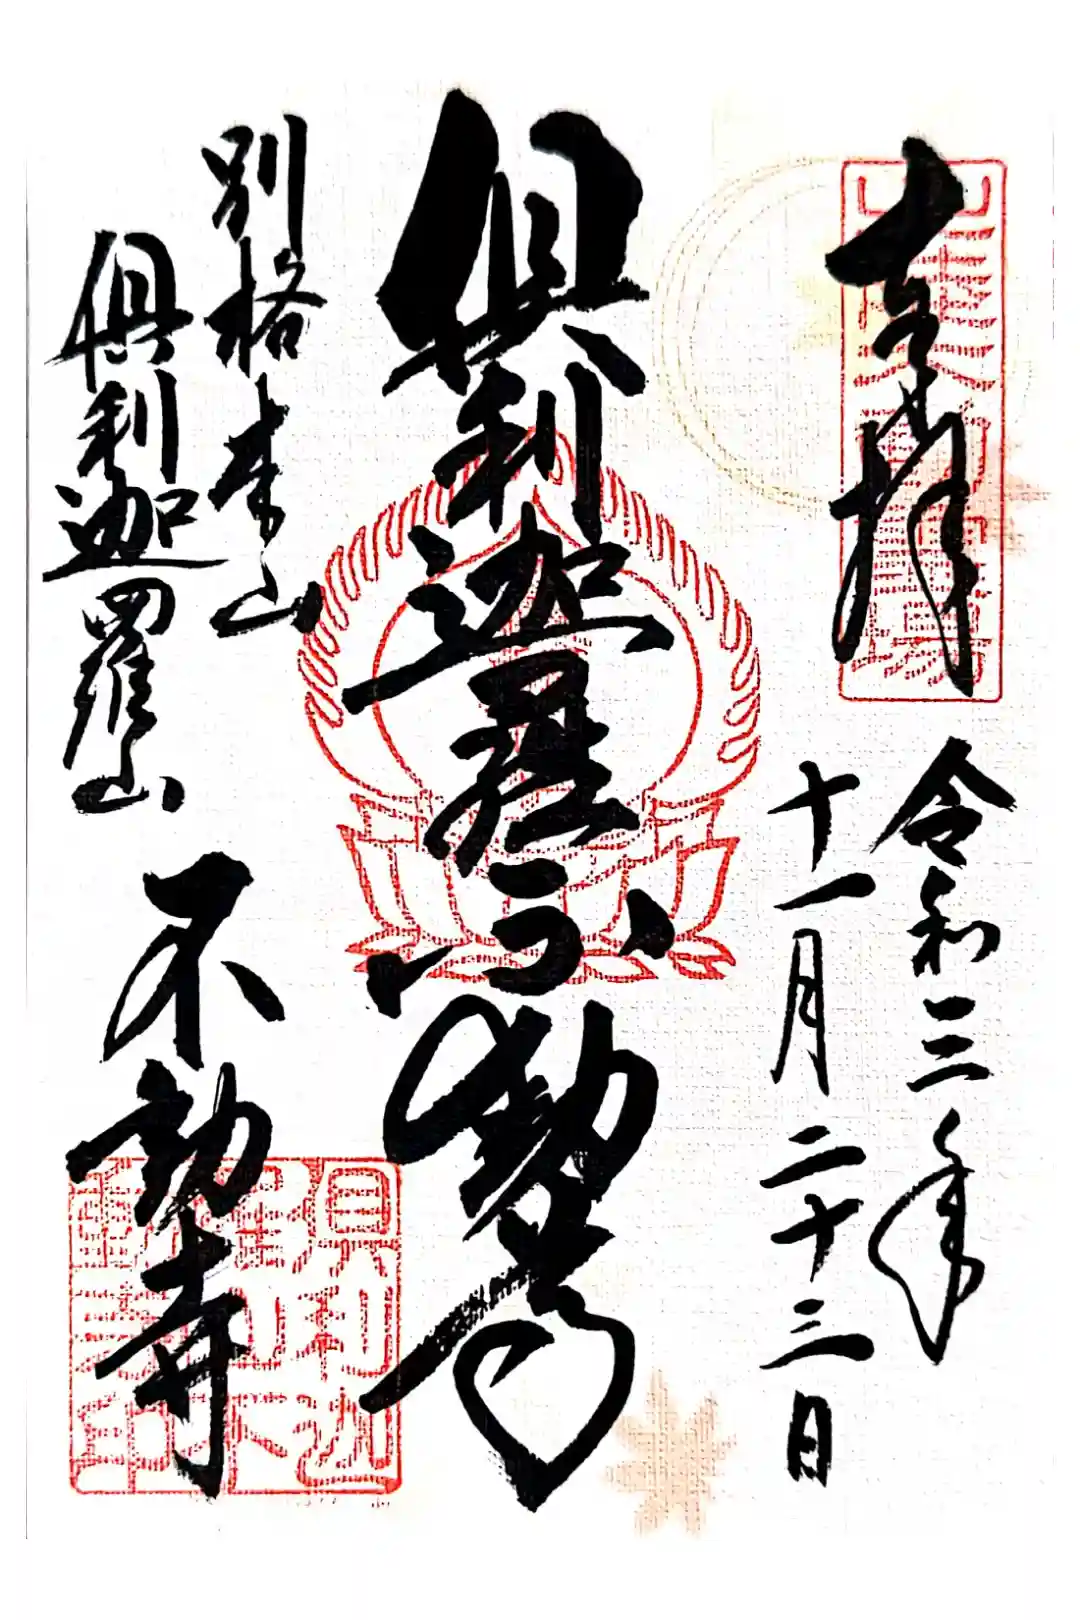 奉拝
令和三年
十一月二十三日
倶利迦羅不動尊
別格本山
倶利迦羅山
不動寺
倶利迦羅山不動寺印